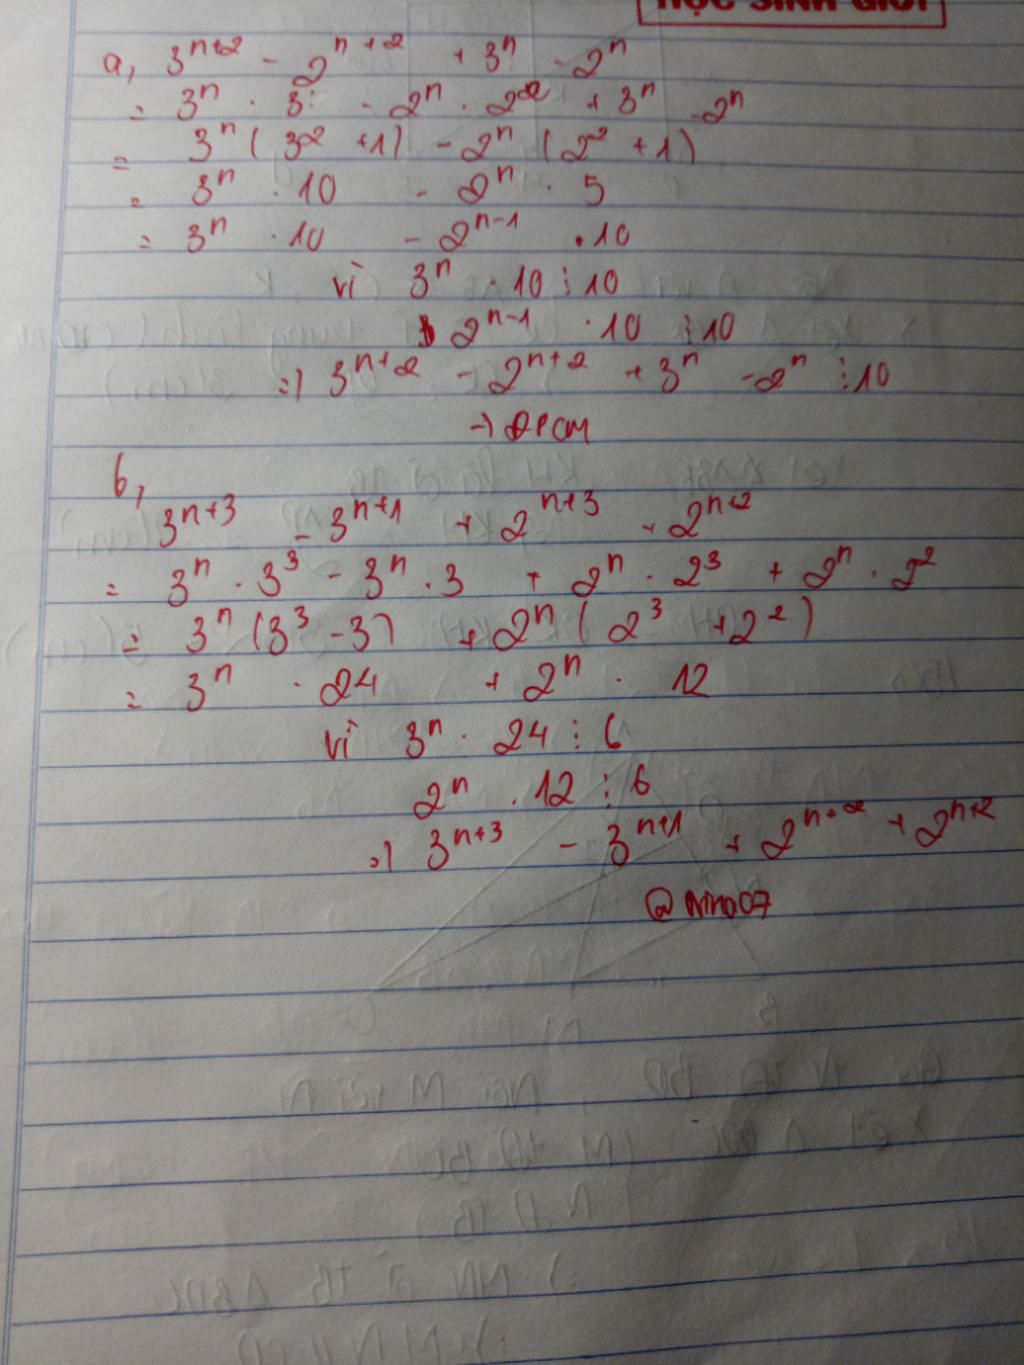 HỌC SINH GIỎI
a, 3ⁿ⁺² - 2ⁿ⁺² + 3ⁿ - 2ⁿ
= 3ⁿ . 3 - 2ⁿ . 2² + 3ⁿ - 2ⁿ
= 3ⁿ (3² + 1) - 2ⁿ (2² + 1)
= 3ⁿ . 10 - 2ⁿ . 5
= 3ⁿ . 10 - 2ⁿ⁻¹ . 10
vì 3ⁿ . 10 ⋮ 10
2ⁿ⁻¹ . 10 ⋮ 10
=) 3ⁿ⁺² - 2ⁿ⁺² + 3ⁿ - 2ⁿ ⋮ 10
-) ĐPCM
b,
3ⁿ⁺³ - 3ⁿ⁺¹ + 2ⁿ⁺³ + 2ⁿ⁺²
= 3ⁿ . 3³ - 3ⁿ . 3 + 2ⁿ . 2³ + 2ⁿ . 2²
= 3ⁿ (3³ - 3) + 2ⁿ (2³ + 2²)
= 3ⁿ . 24 + 2ⁿ . 12
vì 3ⁿ . 24 ⋮ 6
2ⁿ . 12 ⋮ 6
=) 3ⁿ⁺³ - 3ⁿ⁺¹ + 2ⁿ⁺² + 2ⁿ⁺²